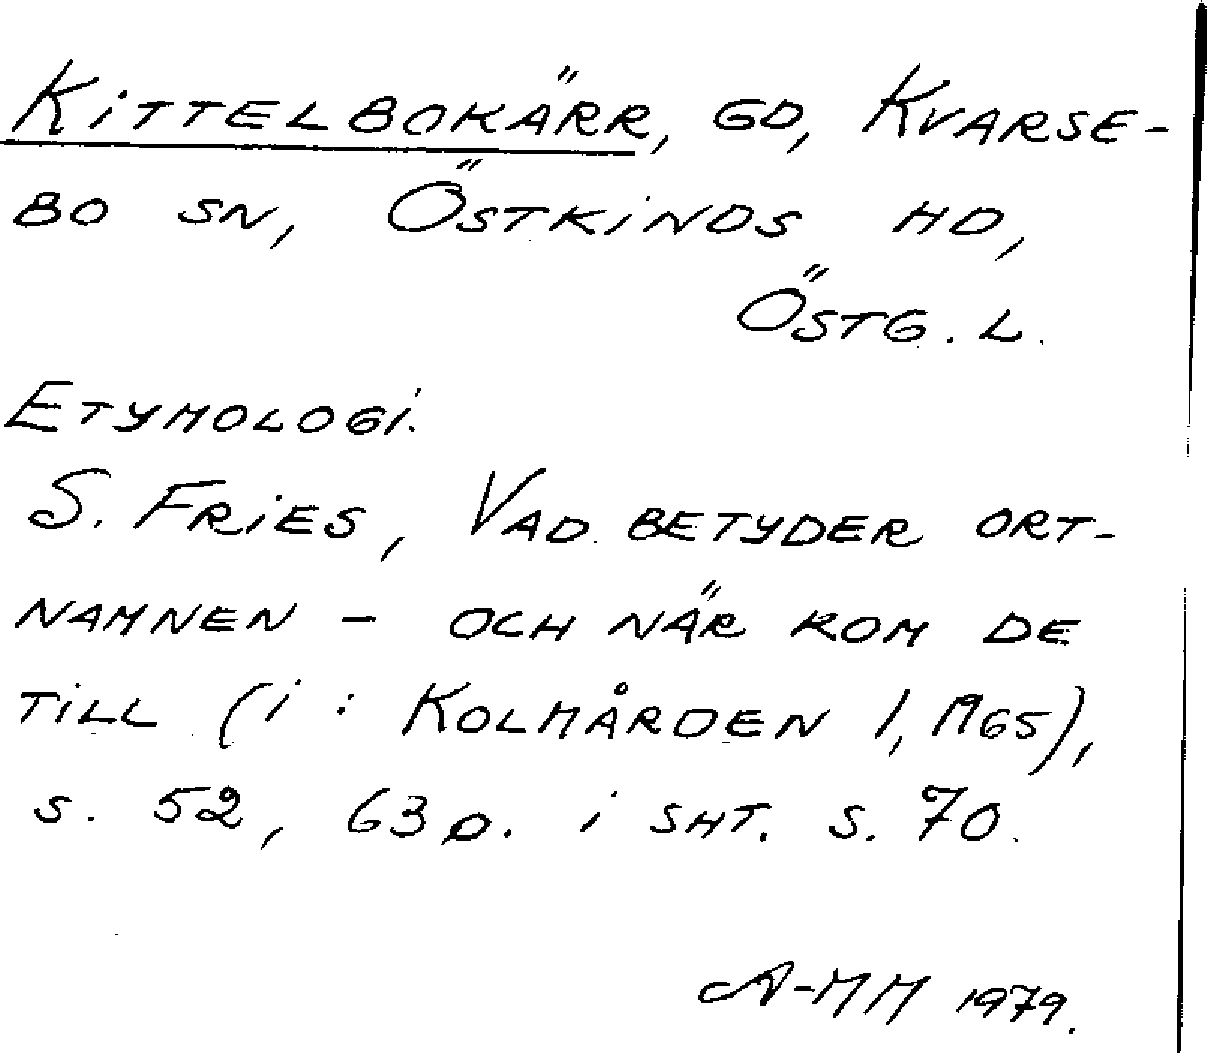 KITTELBOKÄRR, GD, KVARSE-
BO SN, ÖSTKINDS HD,
ÖSTG. L.
ETYMOLOGI.
S. FRIES, VAD BETYDER ORT-
NAMNEN - OCH NÄR KOM DE
TILL (I: KOLMÅRDEN 1, 1965),
S. 52, 63 O. I SHT. S. 70.
A-MM 1979.